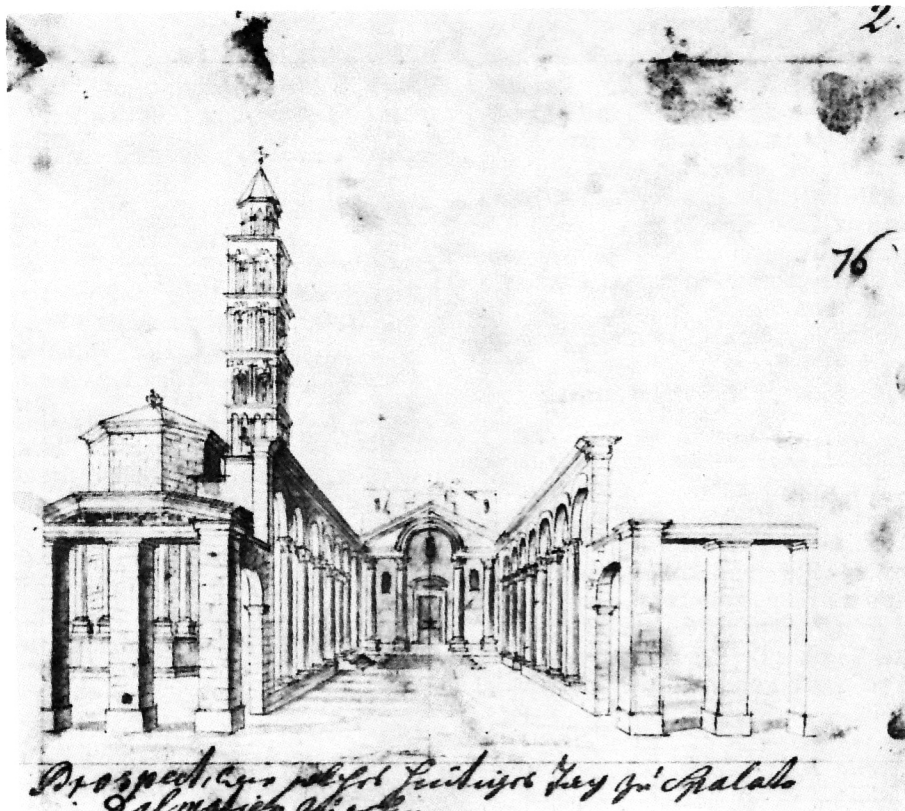 2.
76
Prospect, wie solches heutiges Tag zu Spalato
Dalmatien